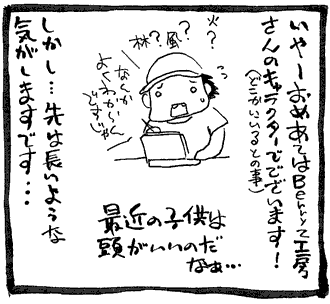 いやーおめあてはBerryz工房
さんのキャラクターででございます!
(どこかにいるとの事)
火?
風?
林?
なんか
よくわか〜ん
ですじゃ
しかし…先は長いような
気がしますです…
最近の子供は
頭がいいのだ
なぁ…